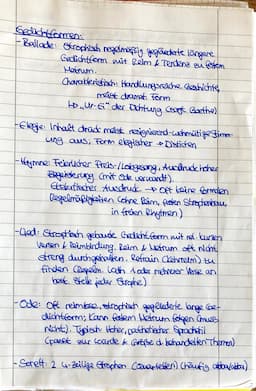 Gedichtformen:
- Ballade: Strophisch regelmäßig gegliederte längere
Gedichtform mit Reim & Tendenz zu festem
Metrum.
Charakteristisch: Handlungsreiche Geschichte,
meist dramat. Form
↳ „Ur-Ei“ der Dichtung (Goethe)
- Elegie: Inhalt drückt meist resigniert-wehmütige Stimm-
ung aus, Form elegischer → Distichen
- Hymne: Feierlicher Preis-/Lobgesang, Ausdruck hoher
Begeisterung (mit Ode verwandt).
Ekstatischer Ausdruck → Oft keine formalen
Regelmäßigkeiten (ohne Reim, festen Strophenbau,
in freien Rhytmen)
- Lied: Strophisch gebaute Gedichtform mit rel. kurzen
Versen & Reimbindung. Reim & Metrum oft nicht
streng durchgehalten. Refrain (Kehrreim) zu
finden (Regelm. 1 oder mehrerer Verse an
best. Stelle jeder Strophe)
- Ode: Oft reimlose, strophisch gegliederte lange Ge-
dichtform; Kann festem Metrum folgen (muss
nicht). Typisch: Hoher, pathetischer Sprachstil
(passt zur Würde & Größe d. behandelten Themen)
- Sonett: 2 4-zeilige Strophen (Quartette) (häufig abba/abba)